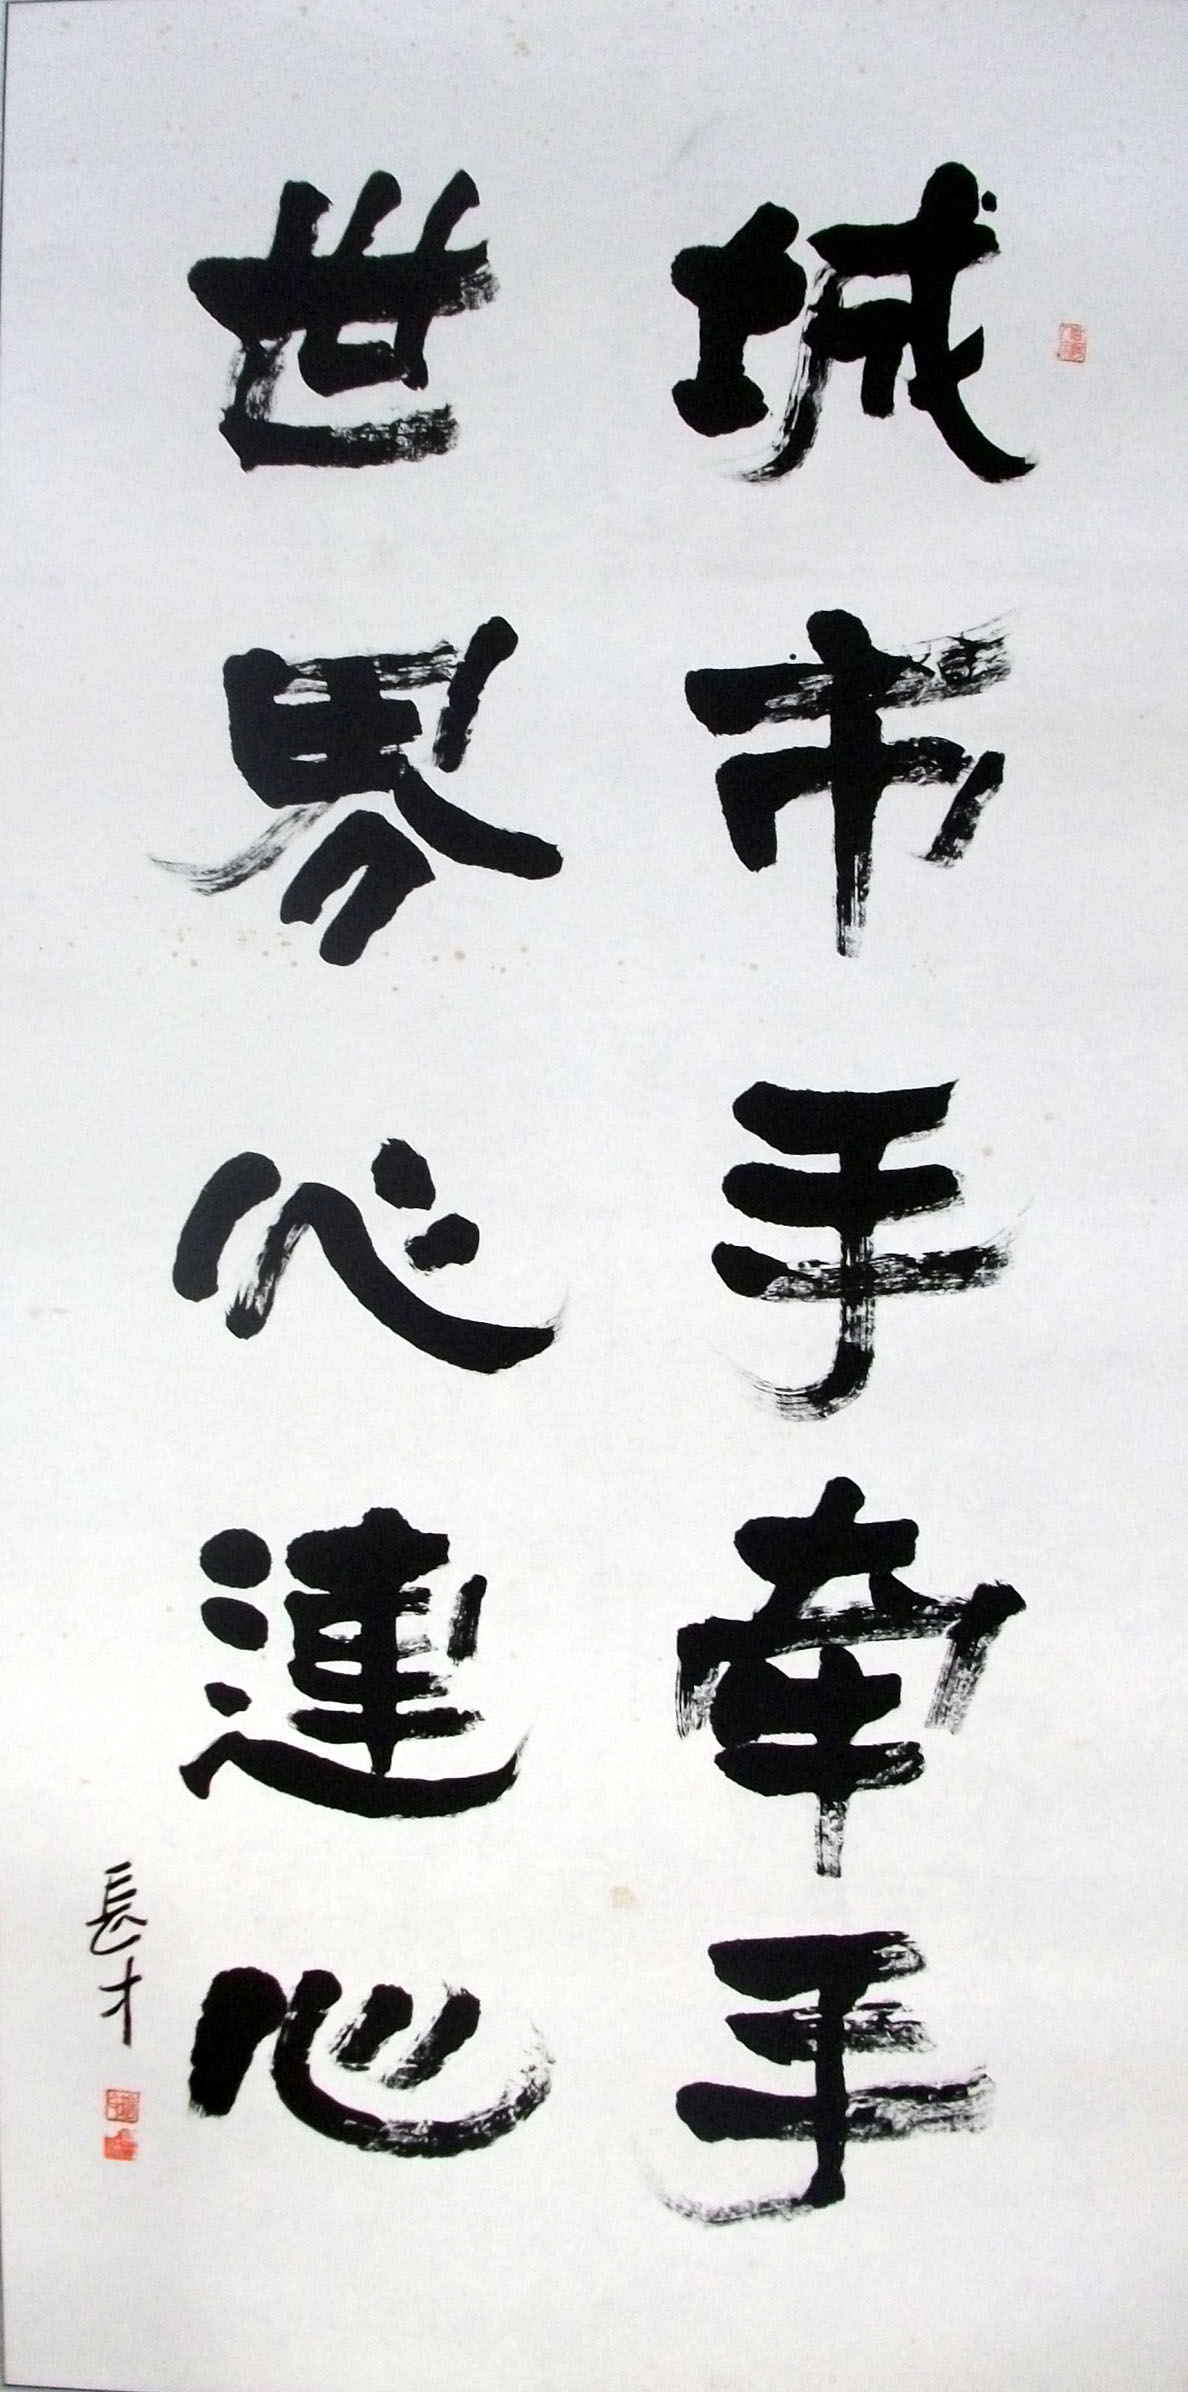 城市手牽手
世界心連心
長才